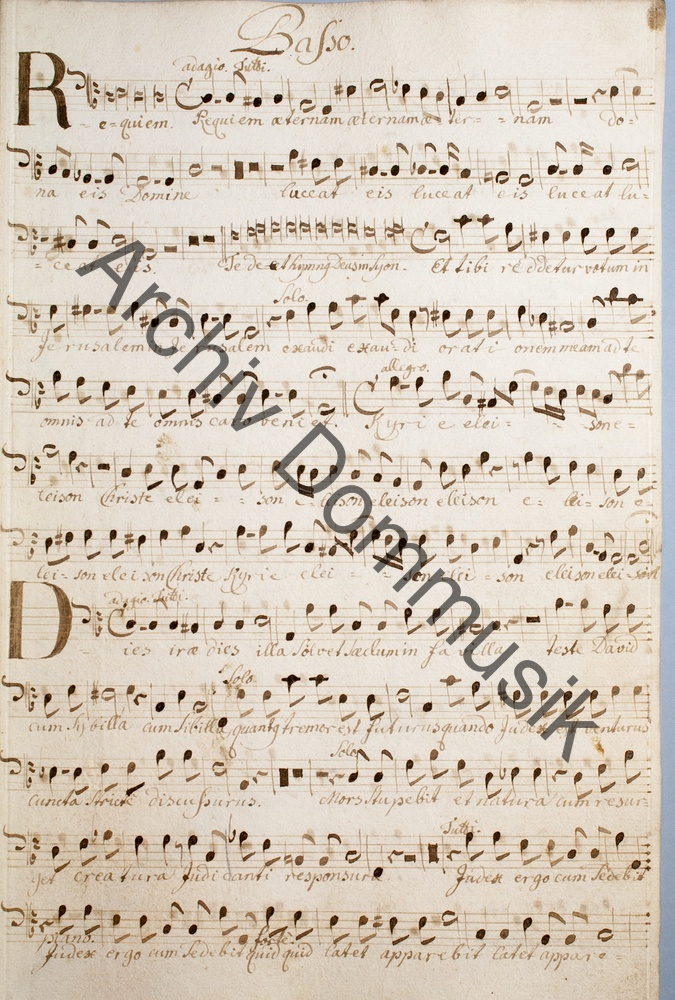 Basso.
adagio. Tutti.
R
e-quiem. Requiem æternam æternam æ-ter--nam do-
na eis Domine luceat eis luceat eis luceat lu-
-ceat eis. Te decet hymnus Deus in Syon. Et tibi reddetur votum in
Solo.
Jerusalem in Jerusalem exaudi exau-di orati onem meam ad te
allegro.
omnis ad te omnis caro veniet. Kyri e elei-- -sone-
leison Christe elei-- son e-leison eleison eleison e- lei-son e-
lei-son eleison Christe Kyrie elei-- -son elei-son eleison elei-son
adagio. Tutti.
D
ies iræ dies illa Solvet Sæclum in fa villa teste David
Solo.
cum Sybilla cum Sibilla quantq tremor est futurus quando Judex est venturus
Solo.
cuncta Stricte discussurus. Mors stupebit et natura cum resur-
Tutti.
get creatura Judicanti responsura. Judex ergo cum Sedebit
piano. forte.
Judex ergo cum Sedebit quid quid latet apparebit latet appare-
Archiv Dommusik